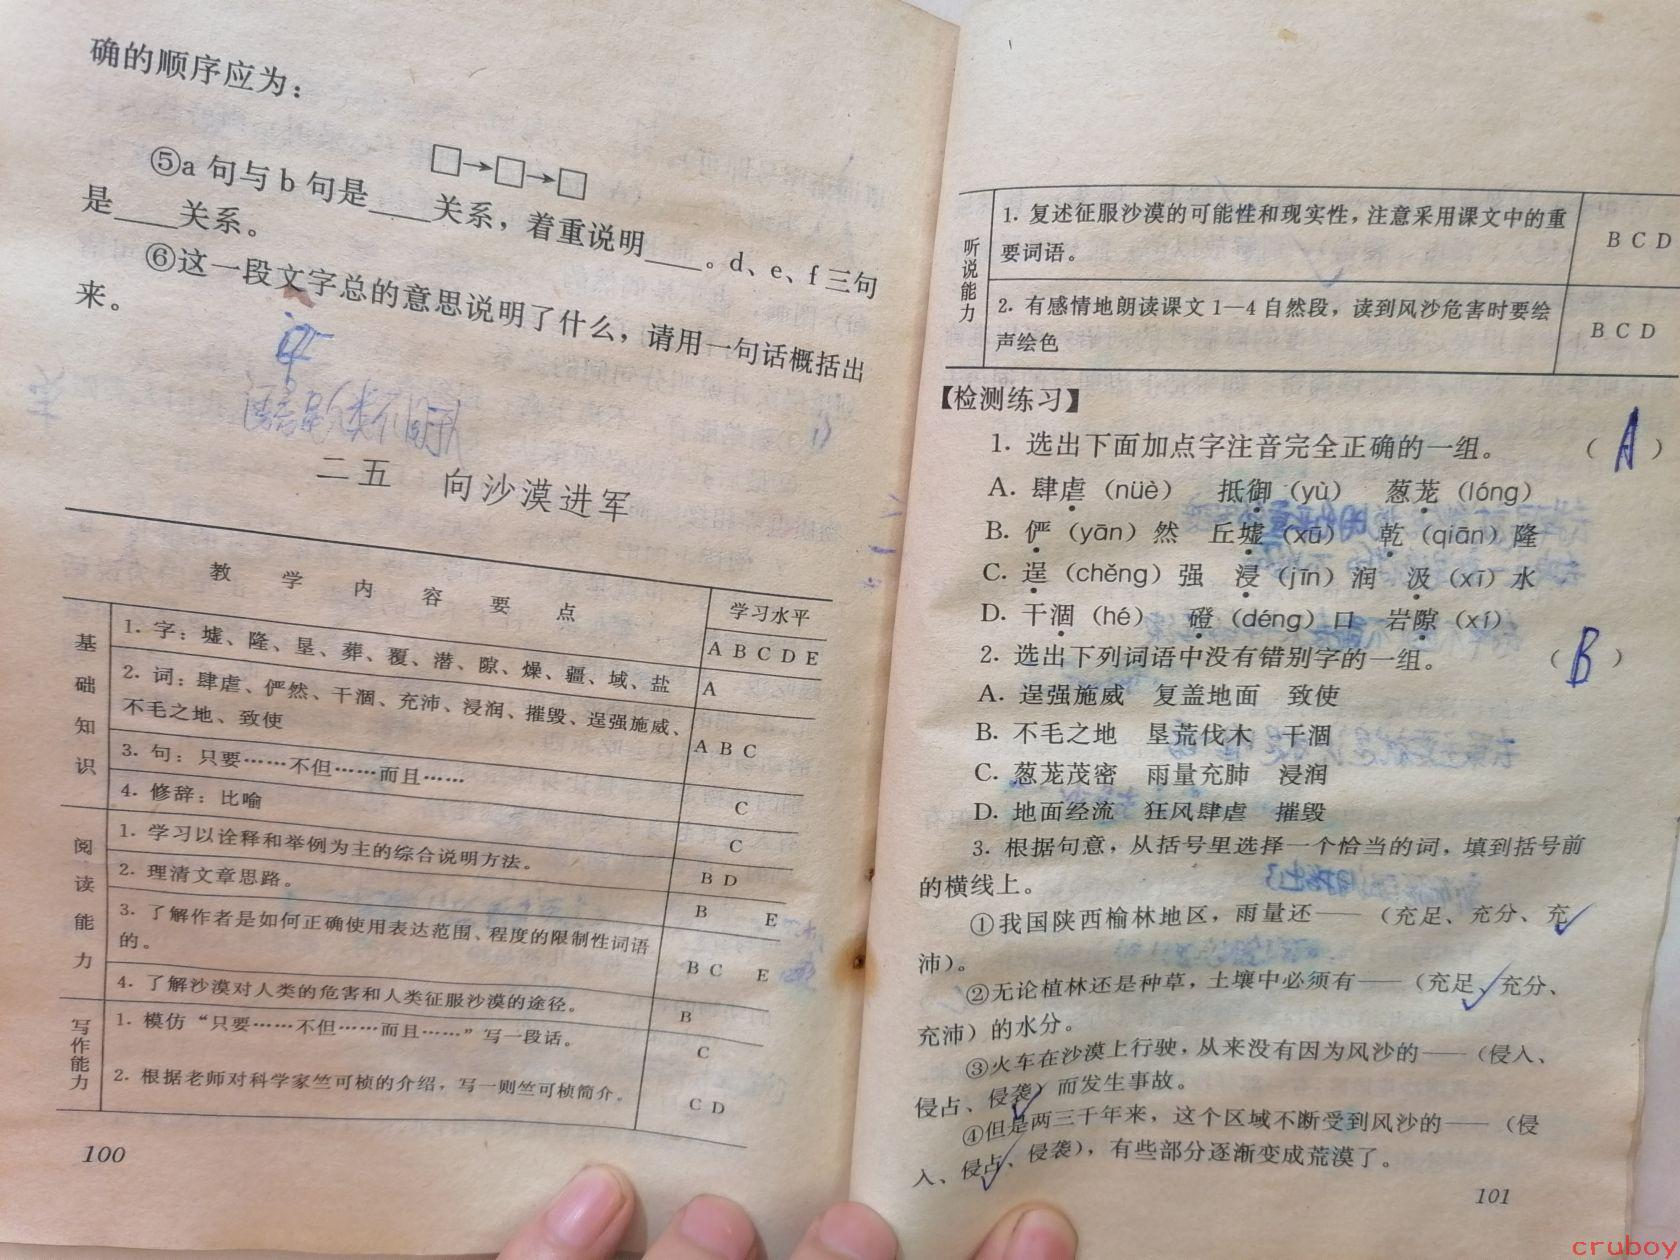 确的顺序应为：
□→□→□
⑤a 句与 b 句是____关系，着重说明____。d、e、f 三句
是____关系。
⑥这一段文字总的意思说明了什么，请用一句话概括出
来。
二五 向沙漠进军
教 学 内 容 要 点 学习水平
A B C D E
基础知识
1. 字：墟、隆、垦、葬、覆、潜、隙、燥、疆、域、盐 A
2. 词：肆虐、俨然、干涸、充沛、浸润、摧毁、逞强施威、
不毛之地、致使 A B C
3. 句：只要……不但……而且…… C
4. 修辞：比喻 C
阅读能力
1. 学习以诠释和举例为主的综合说明方法。 B D
2. 理清文章思路。 B E
3. 了解作者是如何正确使用表达范围、程度的限制性词语
的。 B C E
4. 了解沙漠对人类的危害和人类征服沙漠的途径。 B
写作能力
1. 模仿“只要……不但……而且……”写一段话。 C
2. 根据老师对科学家竺可桢的介绍，写一则竺可桢简介。 C D
100
听说能力
1. 复述征服沙漠的可能性和现实性，注意采用课文中的重
要词语。 B C D
2. 有感情地朗读课文 1—4 自然段，读到风沙危害时要绘
声绘色 B C D
【检测练习】
1. 选出下面加点字注音完全正确的一组。 （ A ）
A. 肆虐（nüè） 抵御（yù） 葱茏（lóng）
B. 俨（yān）然 丘墟（xū） 乾（qiān）隆
C. 逞（chěng）强 浸（jīn）润 汲（xī）水
D. 干涸（hé） 磴（déng）口 岩隙（xí）
2. 选出下列词语中没有错别字的一组。 （ B ）
A. 逞强施威 复盖地面 致使
B. 不毛之地 垦荒伐木 干涸
C. 葱茏茂密 雨量充肺 浸润
D. 地面经流 狂风肆虐 摧毁
3. 根据句意，从括号里选择一个恰当的词，填到括号前
的横线上。
①我国陕西榆林地区，雨量还——（充足、充分、充
沛）。
②无论植林还是种草，土壤中必须有——（充足、充分、
充沛）的水分。
③火车在沙漠上行驶，从来没有因为风沙的——（侵入、
侵占、侵袭）而发生事故。
④但是两三千年来，这个区域不断受到风沙的——（侵
入、侵占、侵袭），有些部分逐渐变成荒漠了。
101
cruboy